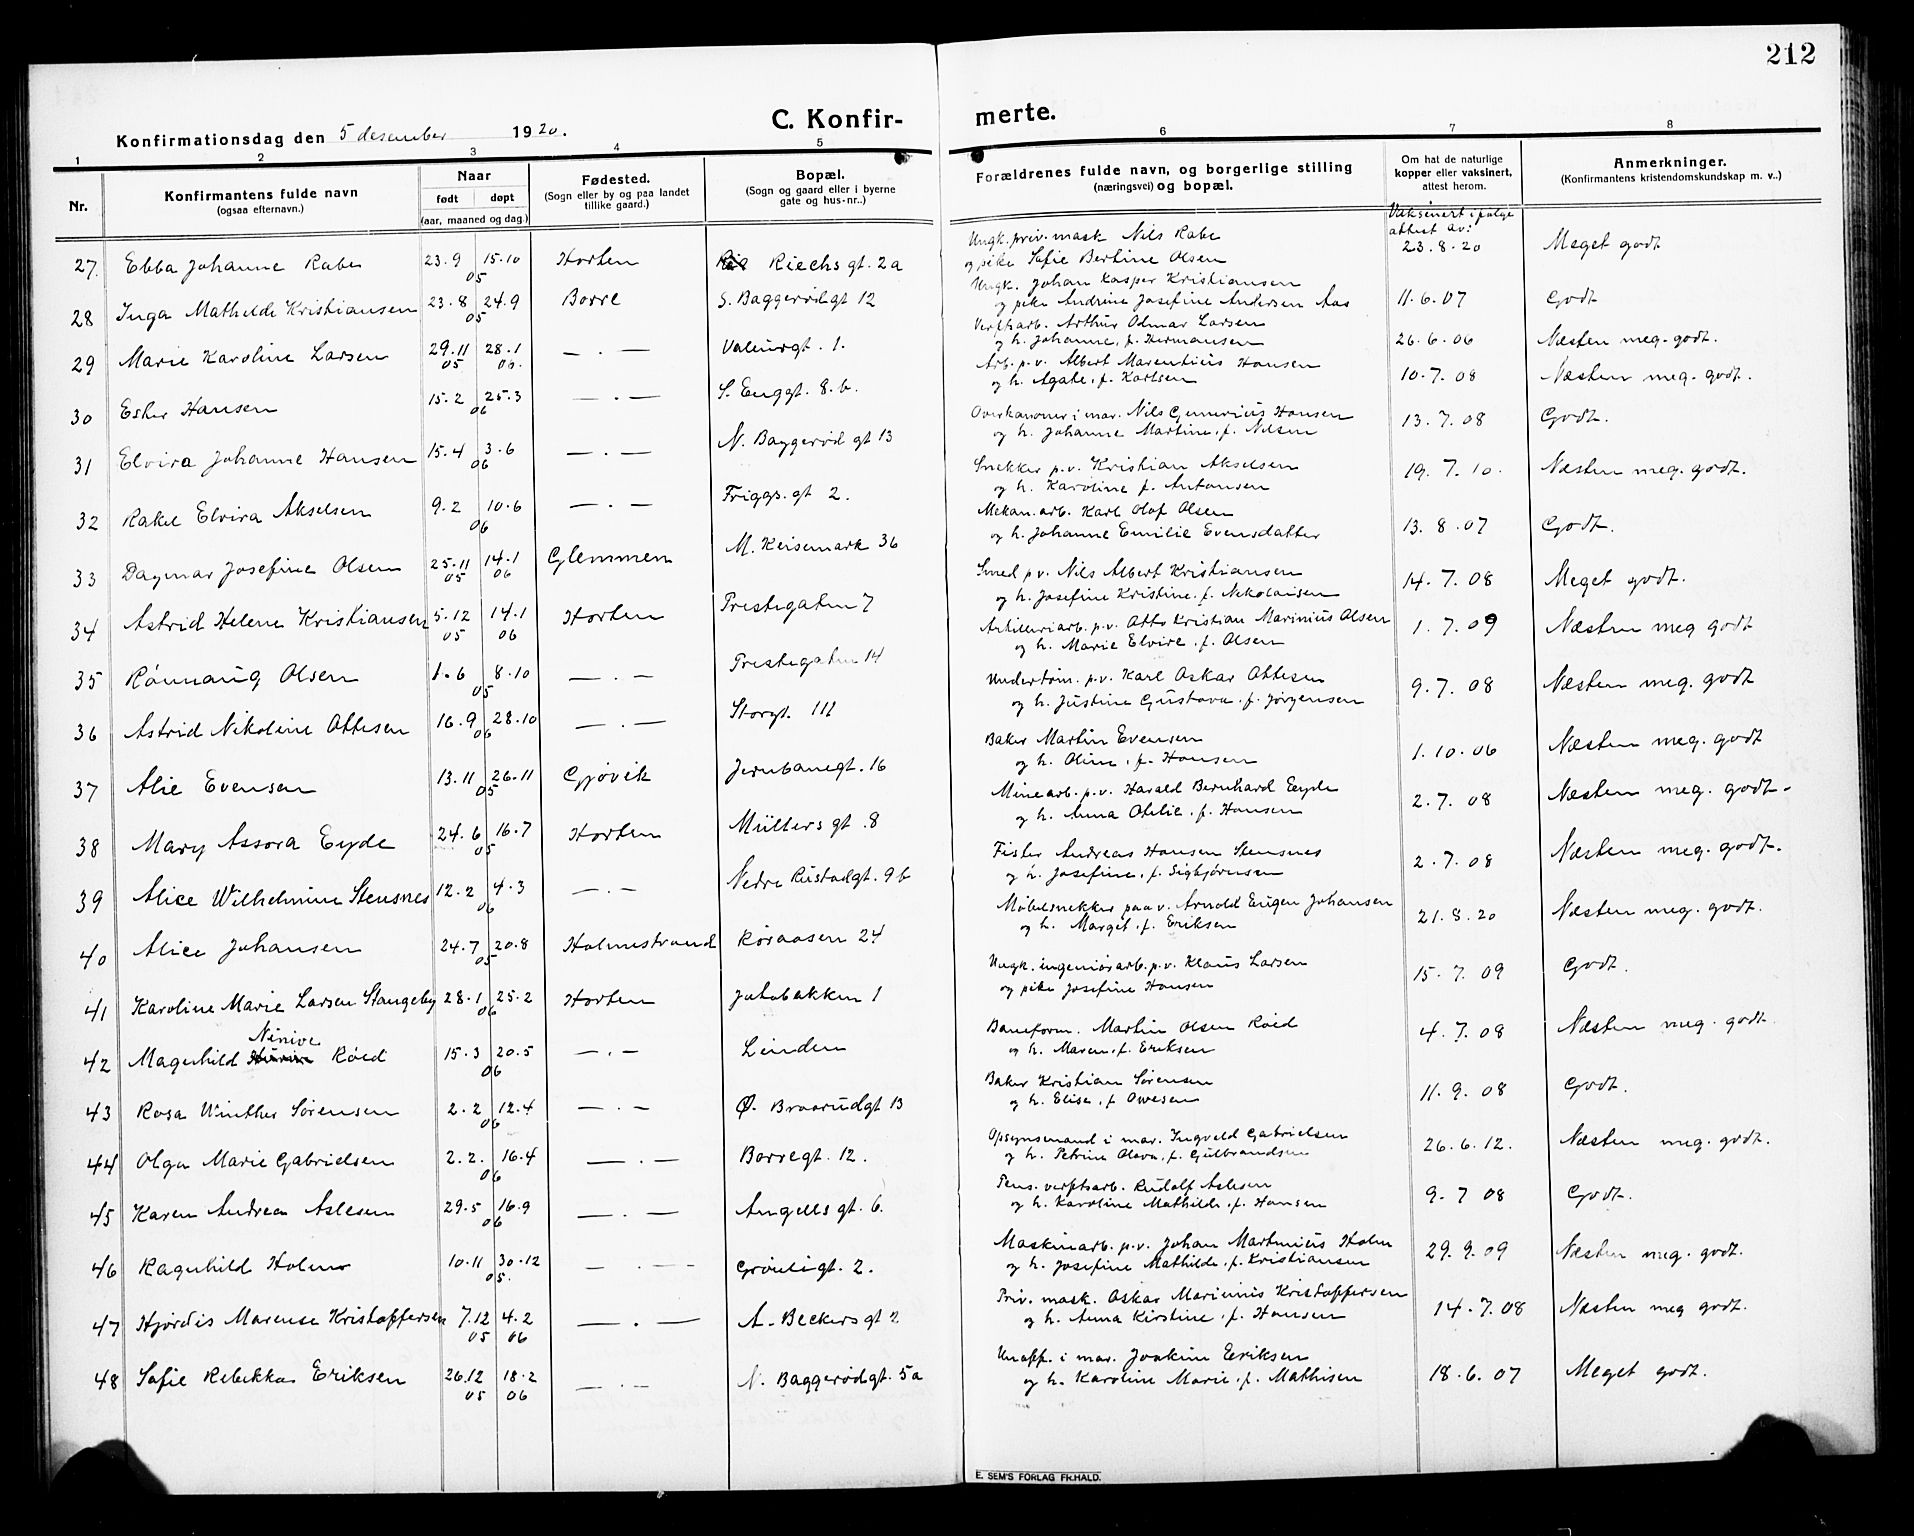 212
C. Konfir- merte.
Konfirmationsdag den 5 desember 1920.
1 2 3 4 5 6 7 8
Nr.
Konfirmantens fulde navn
(ogsaa efternavn.)
Naar
født døpt
(aar, maaned og dag.)
Fødested.
(Sogn eller by og paa landet
tillike gaard.)
Bopæl.
(Sogn og gaard eller i byerne
gate og hus-nr..)
Forældrenes fulde navn, og borgerlige stilling
(næringsvei) og bopæl.
Om hat de naturlige
kopper eller vaksinert,
attest herom.
Anmerkninger.
(Konfirmantens kristendomskundskap m. v..)
Vaksinert ifølge
attest av:
27. Ebba Johanne Rabe 23.9 15.10 05 Horten Riechsgt. 2a Ungk. priv. mask Nils Rabe
og pike Sofie Bertine Olsen 23.8.20 Meget godt
28 Inga Mathilde Kristiansen 23.8 24.9 05 Borre S. Baggerødgt 12 Ungk. Johan Kasper Kristiansen
og pike Andrine Josefine Andersen Aas 11.6.07 Godt
29 Marie Karoline Larsen 29.11 05 28.1 06. — . — Valeurgt. 1. Verftsarb. Arthur Odmar Larsen
og h. Johanne, f. Hermansen 26.6.06 Næsten meg. godt.
30 Ester Hansen 15.2 25.3 06 — . — S. Enggt. 8.b. Arb. p.v. Albert Marentius Hansen
og h. Agate, f. Karlsen 10.7.08 Næsten meg. godt.
31 Elvira Johanne Hansen 15.4 3.6 06 — . — N. Baggerød gt 13 Overkanoner i mar. Nils Gunerius Hansen
og h. Johanne Martine, f. Nilsen 13.7.08 Godt.
32 Rakel Elvira Akselsen 9.2 10.6 06 — . — Friggs.gt 2. Snekker p.v. Kristian Akselsen
og h. Karoline f. Antonsen 19.7.10. Næsten meg. godt.
33 Dagmar Josefine Olsen 25.11 05 14.1 06 Glemmen M. Keisemark 36 Mekan.arb. Karl Olaf Olsen
og h. Johanne Emilie Evensdatter 13.8.07 Godt.
34 Astrid Helene Kristiansen 5.12 05 14.1 06 Horten Prestegaten 7 Smed p.v. Nils Albert Kristiansen
og h. Josefine Kristine, f. Nikolaisen 14.7.08 Meget godt.
35 Rønnaug Olsen 1.6 8.10 05 — . — Prestegaten 14 Artilleriarb. p.v. Otto Kristian Marinius Olsen
og h. Marie Elvire, f. Olsen 1.7.09 Næsten meg godt
36 Astrid Nikoline Ottesen 16.9 28.10 06 — . — Storgt. 111 Undertøm. p.v. Karl Oskar Ottesen
og h. Justine Gustava, f. Jørgensen 9.7.08 Næsten meg. godt
37 Alie Evensen 13.11 26.11 05 Gjøvik Jernbanegt. 16 Baker Martin Evensen
og h. Oline, f. Hansen 1.10.06 Næsten meg. godt
38 Mary Assora Eyde 24.6 16.7 05 Horten Müllersgt. 8 Minearb. p.v. Harald Bernhard Eyde
og h. Anna Otilie, f. Hansen 2.7.08 Næsten meg. godt.
39 Alice Wilhelmine Stensnes 12.2 4.3 06 — . — Nedre Rustadgt. 9b Fisker Andreas Hansen Stensnes
og h. Josefine, f. Sigbjørnsen 2.7.08 Næsten meg. godt.
40 Alice Johansen 24.7 20.8 05 Holmestrand Røraasen 24 Møbelsnekker paa v. Arnold Eugen Johansen
og h. Marget, f. Eriksen 21.8.20 Næsten meg. godt.
41 Karoline Marie Larsen Stangeby 28.1 25.2 06 Horten Jatobakken 1 Ungk. ingeniørarb. p.v. Klaus Larsen
og pike Josefine Hansen 15.7.09 Godt.
42 Magnhild Ninive Røed 15.3 20.5 06 — . — Linden Baneform. Martin Olsen Røed
og h. Maren, f. Eriksen 4.7.08 Næsten meg. godt.
43 Rosa Winther Sørensen 2.2 12.4 06 — . — Ø. Braarudgt 13 Baker Kristian Sørensen
og h. Elise, f. Owesen 11.9.08 Godt.
44 Olga Marie Gabrielsen 2.2. 16.4 06 — . — Borregt. 12. Opsynsmand i mar. Ingvald Gabrielsen
og h. Petrine Olava, f. Gulbrandsen 26.6.12. Næsten meg. godt.
45 Karen Andrea Aslesen 29.5 16.9 06 — . — Angells gt. 6. Pens. verftsarb. Rudolf Aslesen
og h. Karoline Mathilde, f. Hansen 9.7 08 Godt.
46 Ragnhild Holm 10.11 30.12 05. — . — Grønligt. 2. Maskinarb. p.v. Johan Martinius Holm
og h. Josefine Mathilde, f. Kristiansen 29.9.09 Næsten meg. godt.
47 Hjørdis Marense Kristoffersen 7.12 05 4.2 06 — . — A. Beckersgt 2 Priv. mask. Oskar Marinius Kristoffersen
og h. Anna Kirstine, f. Hansen 14.7.08 Næsten meg godt.
48 Sofie Rebekka Eriksen 26.12 05 18.2 06 — . — N. Baggerødgt. 5a Unoff. i mar. Joakim Eriksen
og h. Karoline Marie, f. Mathisen 18.6.07 Meget godt.
E. SEM'S FORLAG FR.HALD.